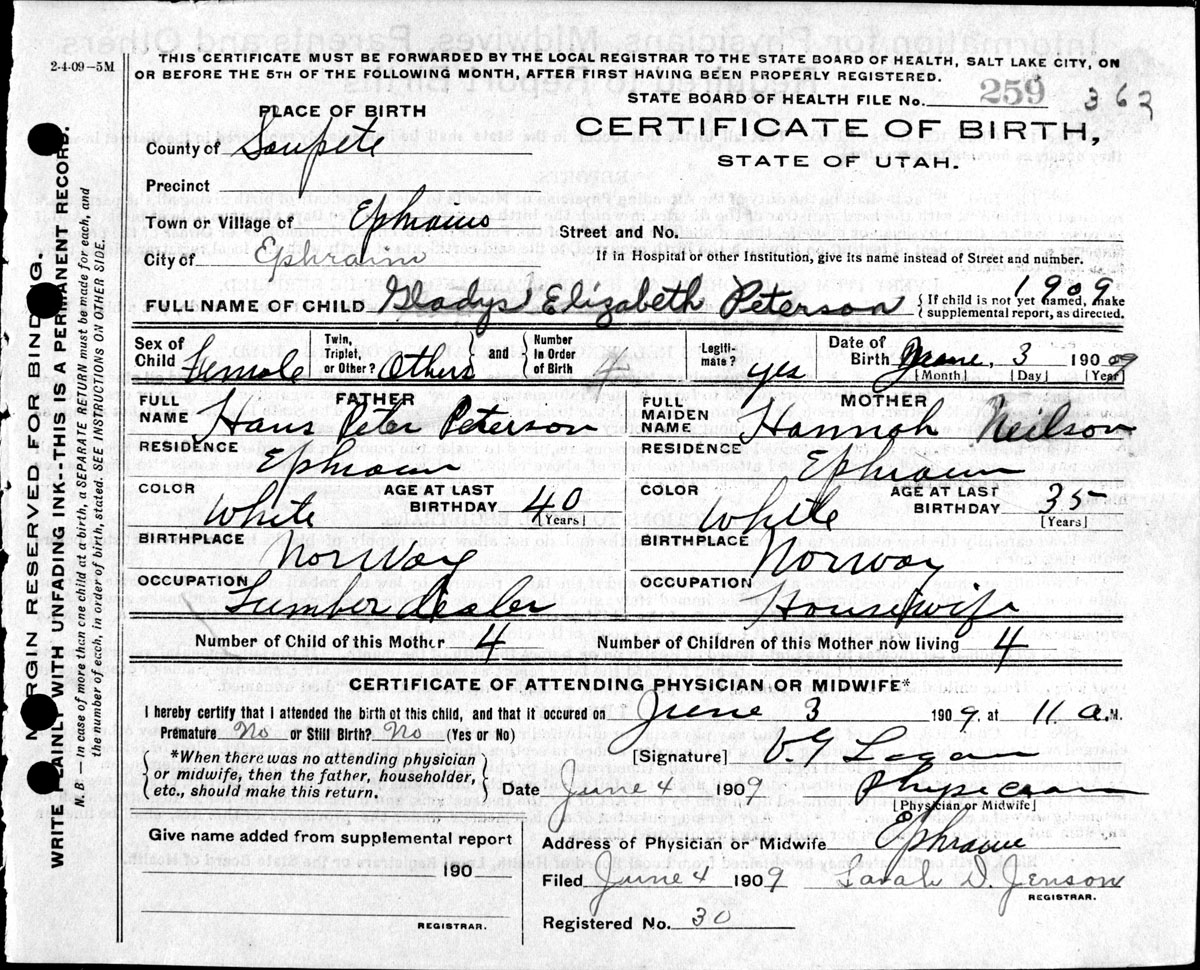 2-4-09—5M
THIS CERTIFICATE MUST BE FORWARDED BY THE LOCAL REGISTRAR TO THE STATE BOARD OF HEALTH, SALT LAKE CITY, ON
OR BEFORE THE 5TH OF THE FOLLOWING MONTH, AFTER FIRST HAVING BEEN PROPERLY REGISTERED.
STATE BOARD OF HEALTH FILE No. 259 363
PLACE OF BIRTH
CERTIFICATE OF BIRTH,
STATE OF UTAH.
County of Sanpete
Precinct
Town or Village of Ephraim
Street and No.
City of Ephraim
If in Hospital or other Institution, give its name instead of Street and number.
1909
FULL NAME OF CHILD Gladys Elizabeth Peterson { If child is not yet named, make supplemental report, as directed.
Sex of Child Female Twin, Triplet, or Other? Others and Number In Order of Birth 4 Legiti-mate? yes Date of Birth June, 3 1909
[Month] [Day] [Year]
FATHER
FULL NAME Hans Peter Peterson
RESIDENCE Ephraim
COLOR White AGE AT LAST BIRTHDAY 40 [Years]
BIRTHPLACE Norway
OCCUPATION Lumber dealer
MOTHER
FULL MAIDEN NAME Hannah Neilson
RESIDENCE Ephraim
COLOR White AGE AT LAST BIRTHDAY 35 [Years]
BIRTHPLACE Norway
OCCUPATION Housewife
Number of Child of this Mother 4 Number of Children of this Mother now living 4
CERTIFICATE OF ATTENDING PHYSICIAN OR MIDWIFE*
I hereby certify that I attended the birth of this child, and that it occured on June 3 1909, at 11 a.M.
Premature No or Still Birth? No (Yes or No)
[Signature] Logan
*When there was no attending physician
or midwife, then the father, householder,
etc., should make this return.
Date June 4 1909 Physician
[Physician or Midwife]
Give name added from supplemental report
190
REGISTRAR.
Address of Physician or Midwife Ephraim
Filed June 4 1909 Sarah D. Jenson
REGISTRAR.
Registered No. 30
MARGIN RESERVED FOR BINDING.
WRITE PLAINLY WITH UNFADING INK--THIS IS A PERMANENT RECORD.
N. B — In case of more than one child at a birth, a SEPARATE RETURN must be made for each, and
the number of each, in order of birth, stated. SEE INSTRUCTIONS ON OTHER SIDE.